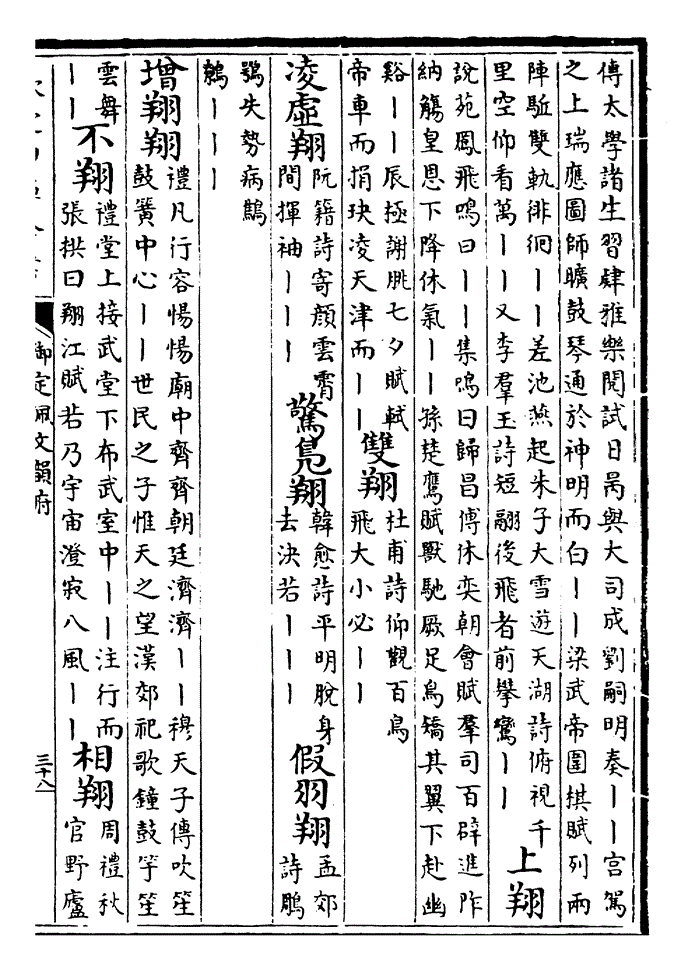 傳太學諸生習肄雅樂閱試日昺與大司成劉嗣明奏丨丨宮駕
之上瑞應圖師曠鼓琴通於神明而白丨丨梁武帝圍棋賦列兩
陣駈雙軌徘徊丨丨差池燕起朱子大雪遊天湖詩俯視千
里空仰看萬丨丨又李羣玉詩短翮後飛者前攀鸞丨丨
上翔
說苑鳳飛鳴曰丨丨集鳴曰歸昌傅休奕朝會賦羣司百辟進阼
納觴皇恩下降休氣丨丨孫楚鷹賦獸馳厥足鳥矯其翼下赴幽
谿丨丨辰極謝朓七夕賦軾
帝車而捐玦凌天津而丨丨
雙翔
杜甫詩仰觀百鳥
飛大小必丨丨
凌虛翔
阮籍詩寄顏雲霄
間揮袖丨丨丨
驚鳧翔
韓愈詩平明脫身
去決若丨丨丨
假羽翔
孟郊
詩鵬
鶚失勢病鷦
鷯丨丨丨
增翔翔
禮凡行容愓愓廟中齊齊朝廷濟濟丨丨穆天子傳吹笙
鼓簧中心丨丨世民之子惟天之望漢郊祀歌鐘鼓竽笙
雲舞
丨丨
不翔
禮堂上接武堂下布武室中丨丨注行而
張拱曰翔江賦若乃宇宙澄寂八風丨丨
相翔
周禮秋
官野廬
御定佩文韻府
三十八